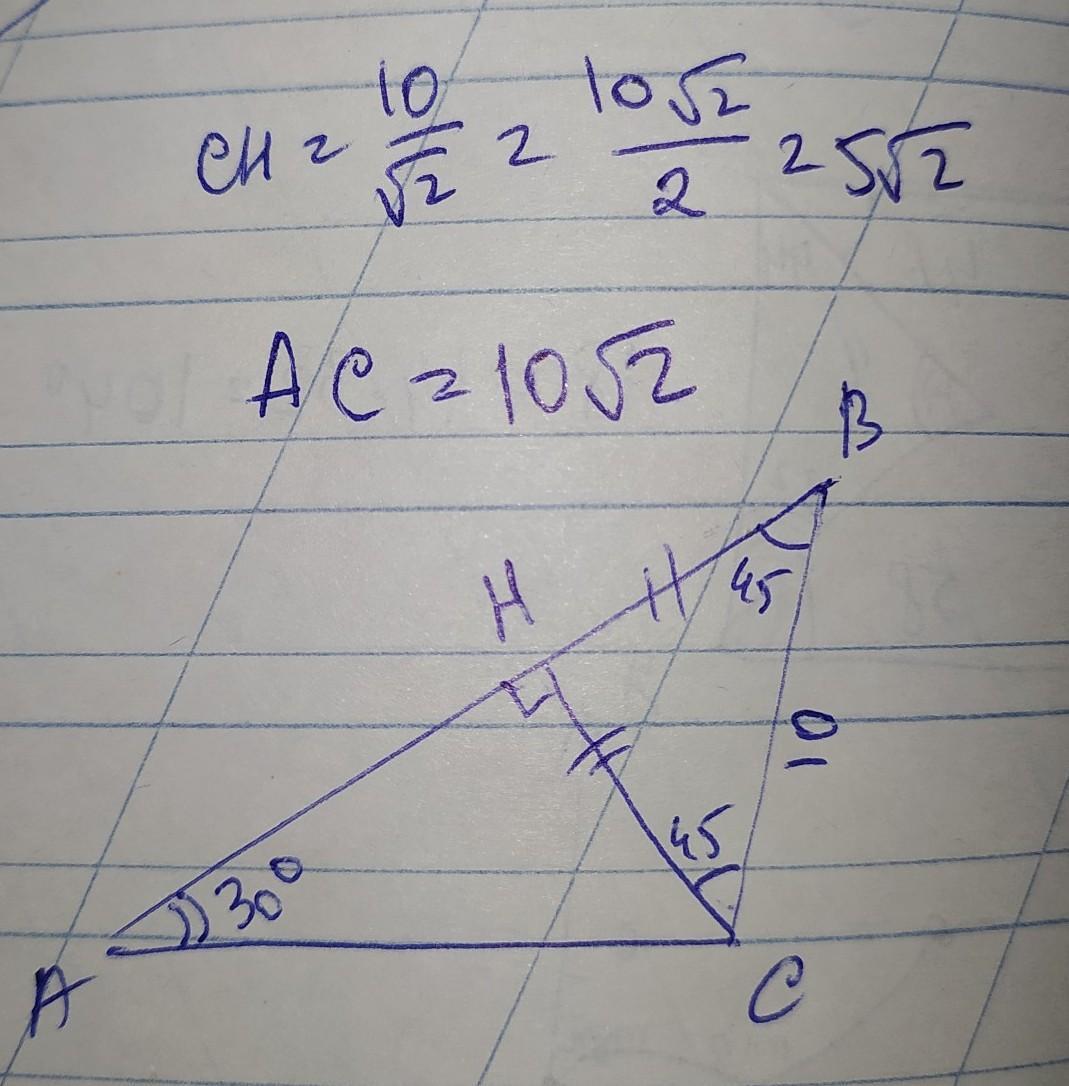 CH = 10/√2 = 10√2/2 = 5√2
AC = 10√2
B
H
45
10
45
30°
A
C